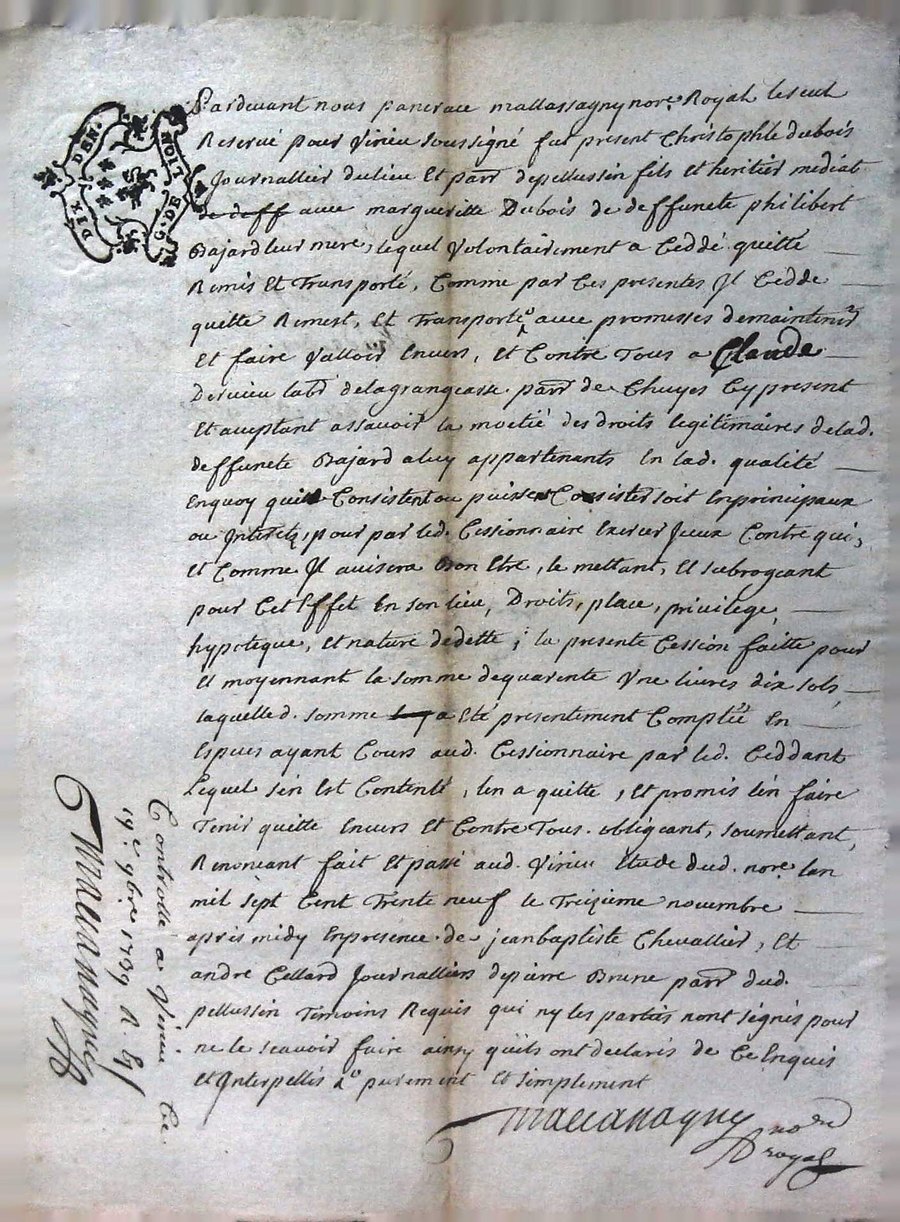 DIX DEN.
G. DE LION
Pardevant nous pancrace mallassagny nore. Royal le seul
Reservé pour Virieu soussigné fut present Christophle dubois
Journallier du lieu Et parr. de pellussin fils et heritier mediat
de deff avec margueritte Dubois de deffuncte philibert
Bajard leur mere, lequel Volontairement a Ceddé quitté
Remis Et Transporté, Comme par Ces presentes Jl Cedde
quitte Remest, Et Transporte avec promesses de maintenir
Et faire Valloir Envers, Et Contre Tous a Claude
Dervieu labr. de la grangeasse parr. de Chuyes Cy present
Et acceptant assavoir la moetié des droits legitimaires de lad.
deffuncte Bajard a luy appartenants En lad. qualité
Enquoy quils Consistent ou puissent Consister soit En principaux
ou Interetz, pour par led. Cessionnaire Exercer Jceux Contre qui,
Et Comme Jl avisera Bon Etre, le mettant, Et subrogeant
pour Cet Effet En son lieu, Droits, place, privilege,
hypoteque, Et nature de dette; la presente Cession faitte pour
Et moyennant la somme de quarente Vne livres dix sols,
laquelle d. somme a Eté presentement Comptée En
Especes ayant Cours aud. Cessionnaire par led. Ceddant
Lequel s'en Est Contenté, l'en a quitté, Et promis l'en faire
Tenir quitte Envers Et Contre Tous. obligeant, soumettant,
Renonceant fait Et passé aud. Virieu Etude dud. nore. lan
mil sept Cent Trente neuf le Treizieme novembre
apres midy En presence de jean baptiste Chevallier, Et
andre Cellard Journalliers de pierre Brune parr. dud.
pellussin Temoins Requis qui ny les parties n'ont signés pour
ne le scavoir faire ainsy quils ont declarés de Ce Enquis
Et Interpellés purement et simplement
nore
royal
Controlle a Virieu Ce
19e. 9bre 1739 R